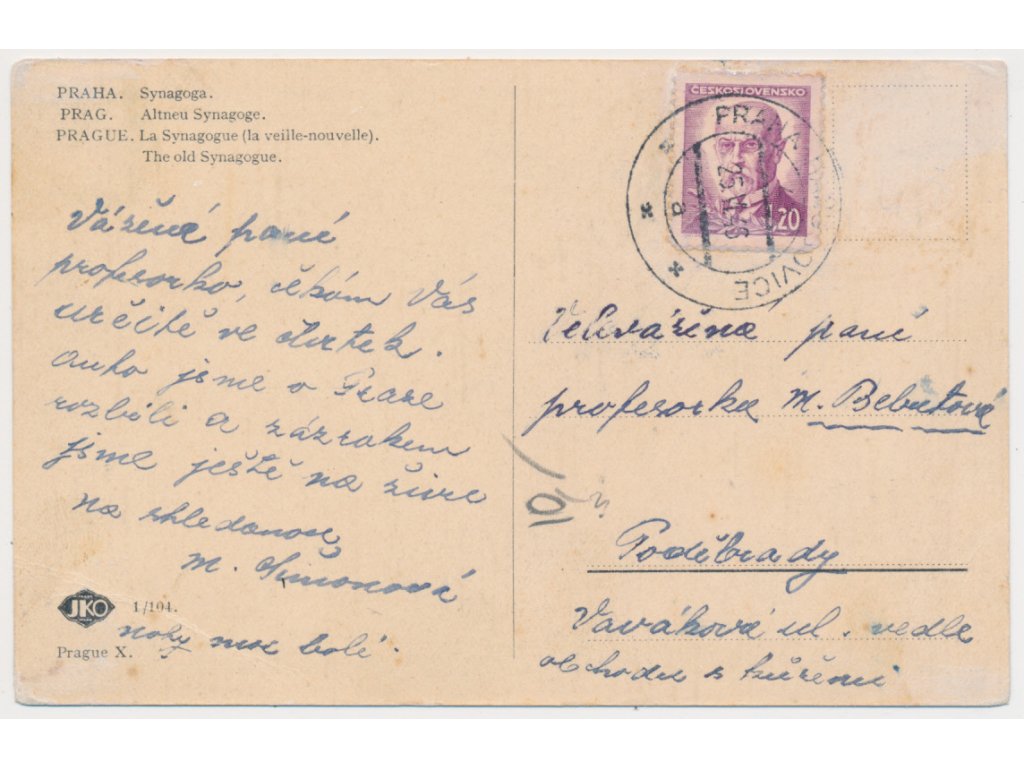 PRAHA. Synagoga.
PRAG. Altneu Synagoge.
PRAGUE. La Synagogue (la veille-nouvelle).
The old Synagogue.
Vážená paní
profesorko, čekám Vás
určitě ve čtvrtek.
Auto jsme o Praze
rozbili a zázrakem
jsme ještě na živu
na shledanou
M. Simonová
JKO 1/104.
nohy moc bolé.
Prague X.
ČESKOSLOVENSKO
1.20
PRAHA
OVICE
a
10,/
Velevážená paní
profesorka M. Bebutová
Poděbrady
Vavákova ul. vedle
obchodu s kůžemi